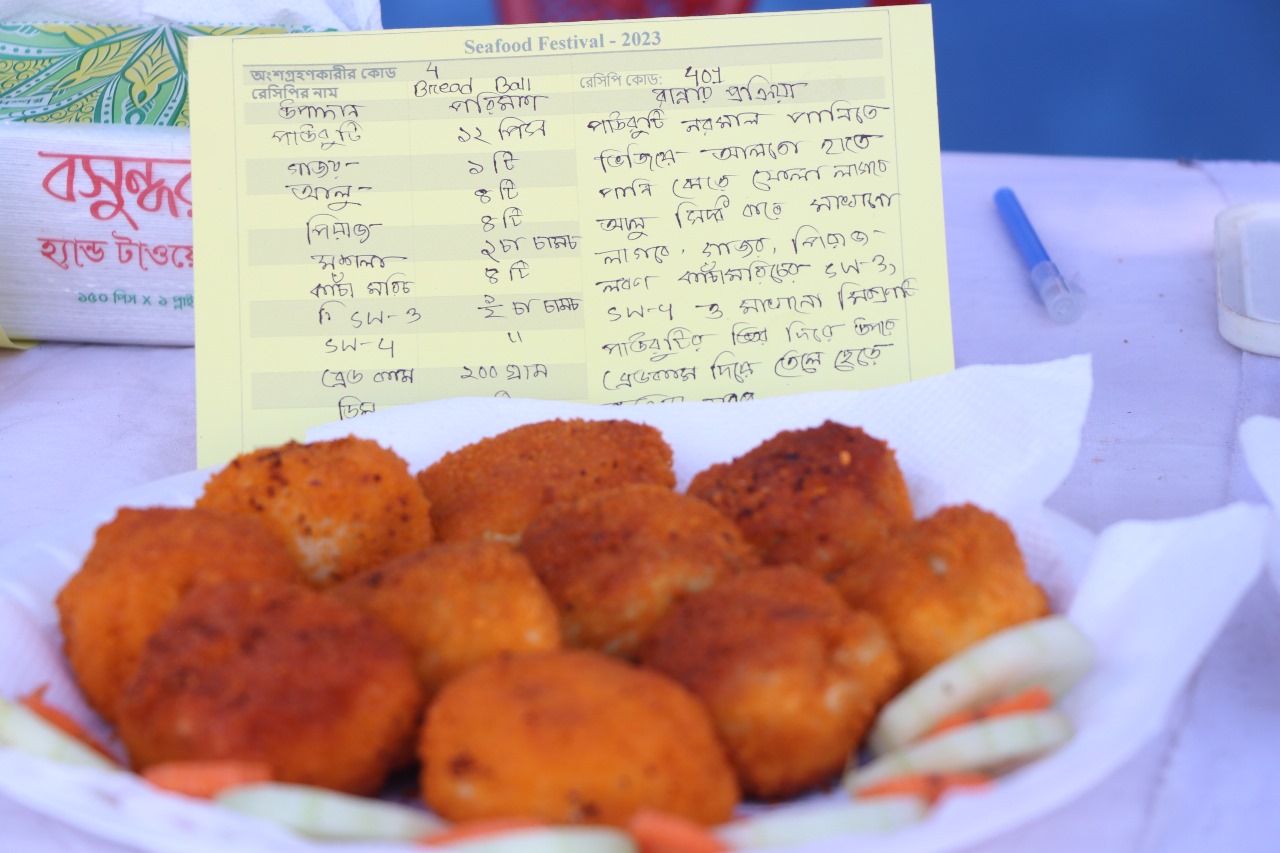 Seafood Festival - 2023
অংশগ্রহণকারীর কোড 4 রেসিপি কোড: 401
রেসিপির নাম Bread Ball রান্নার প্রক্রিয়া
উপাদান পরিমাণ
পাউরুটি ১২ পিস
গাজর- ১ টি
আলু- ৪ টি
পিয়াজ ৪ টি
মশলা ২ চা চামচ
কাঁচা মরিচ ৪ টি
SW-3 ১/২ চা চামচ
SW-4 "
ব্রেড ক্রাম ২০০ গ্রাম
ডিম
পাউরুটি নরমাল পানিতে
ভিজিয়ে আলতো হাতে
পানি ফেলে লাগবে
আলু সিদ্ধ করে মাখানো
লাগবে, গাজর, পিয়াজ-
লবণ কাঁচামরিচের SW-3,
SW-4 ও মাখানো মিশ্রণটি
পাউরুটির ভিতর দিয়ে উপরে
ব্রেডক্রাম দিয়ে তেলে ছেড়ে
বসুন্ধরা
হ্যান্ড টাওয়ে
১৫০ পিস x ১ প্লাই